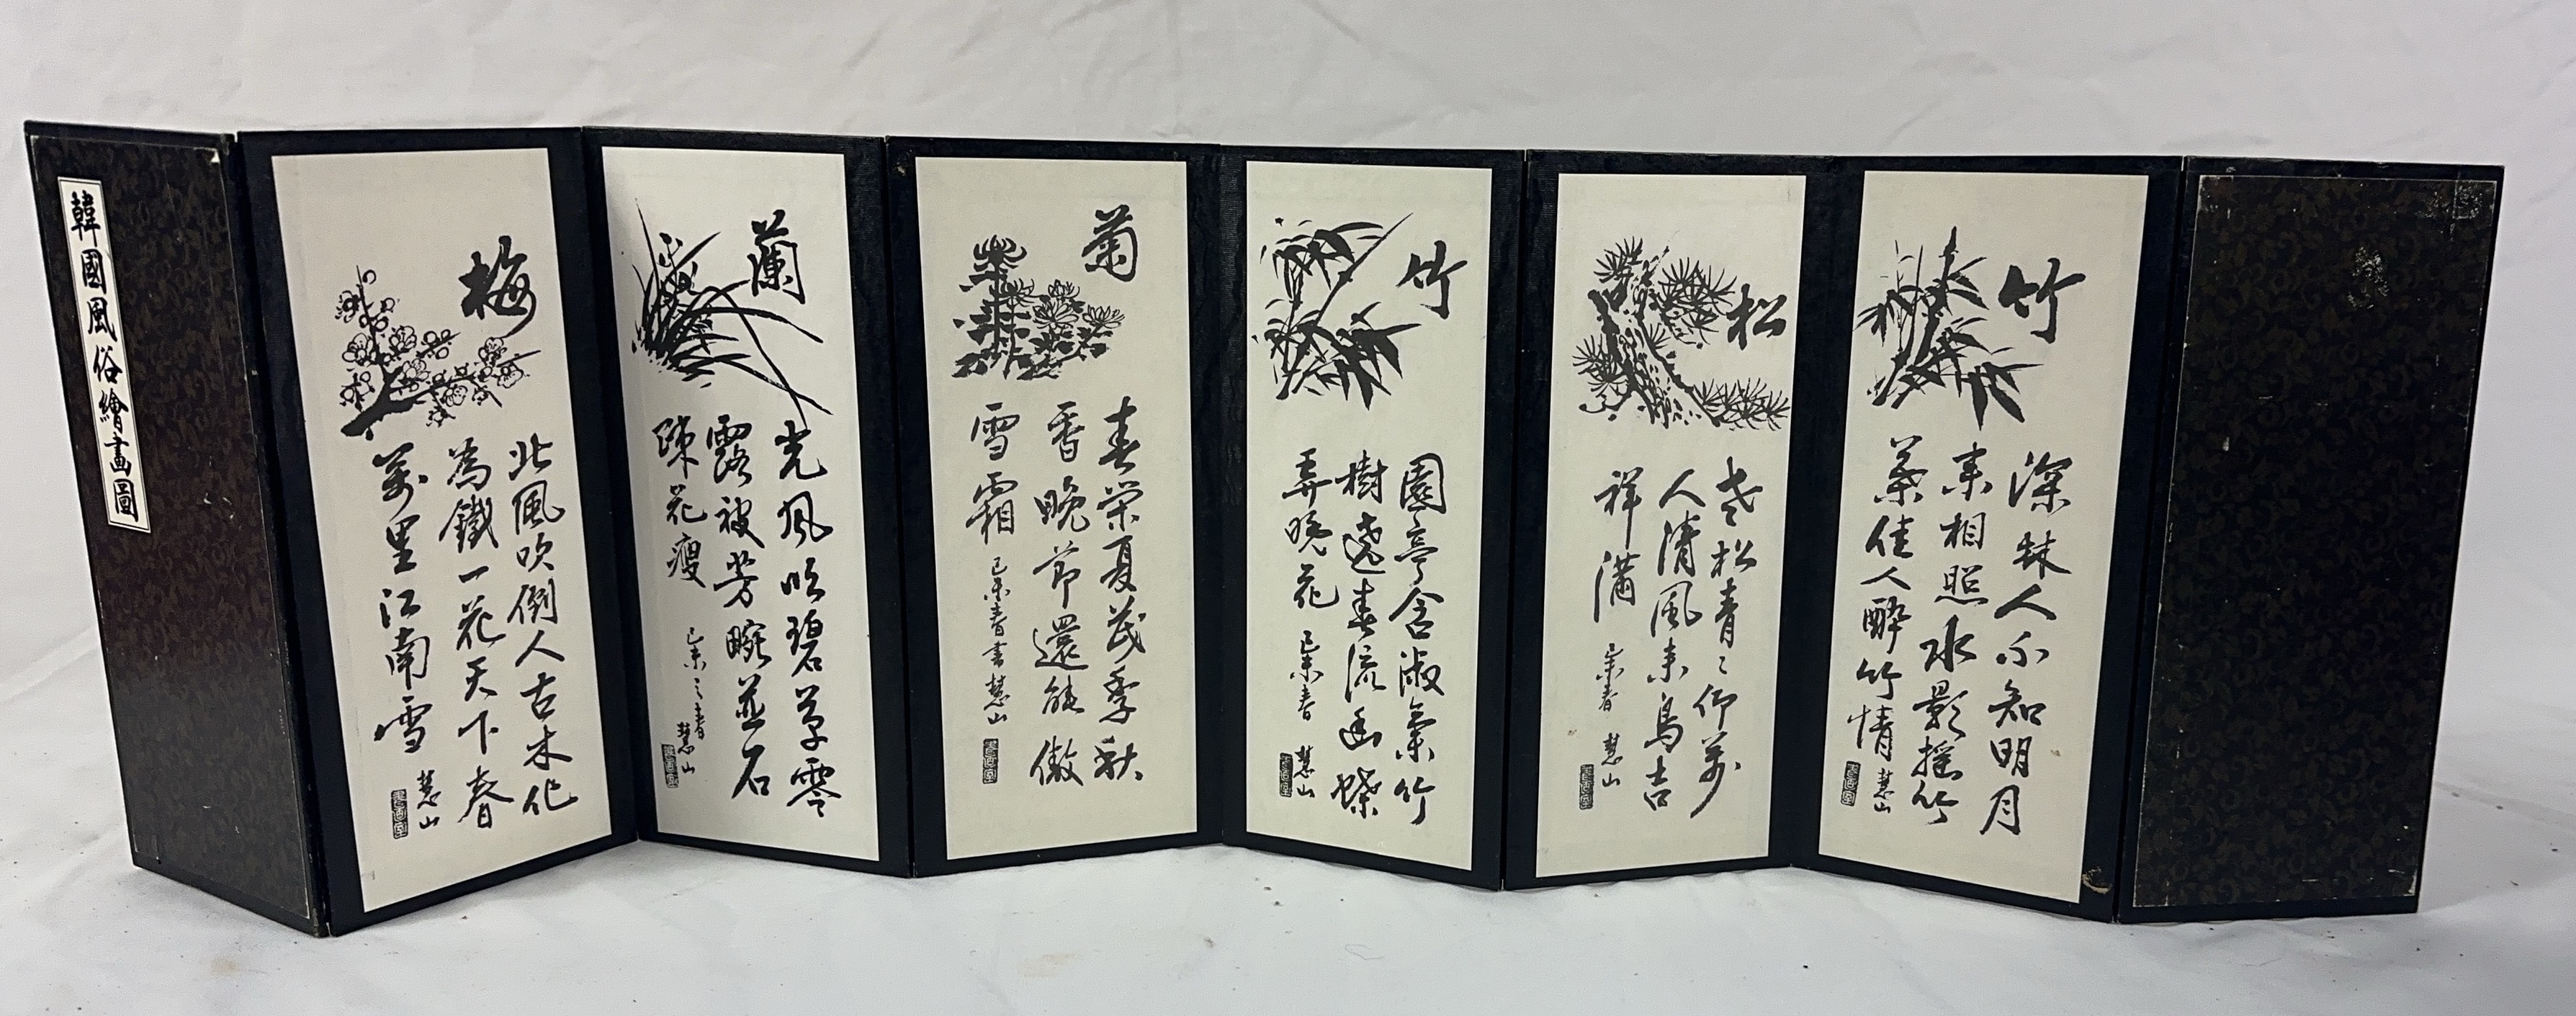 韓國風俗繪畫圖
梅
北風吹倒人古木化
為鐵一花天下春
萬里江南雪
慧山
蘭
光風吹碧草零
露被芳畹並石
疎花瘦
己未之春
慧山
菊
春荣夏茂季秋
香晚節還能傲
雪霜
己未春書慧山
竹
園亭含淑氣竹
樹遶春流幽蝶
弄晚花
己未春
慧山
松
老松青〻仰萬
人清風来鳥吉
祥滿
己未春
慧山
竹
深林人不知明月
来相照水影摇竹
葉佳人醉竹情
慧山